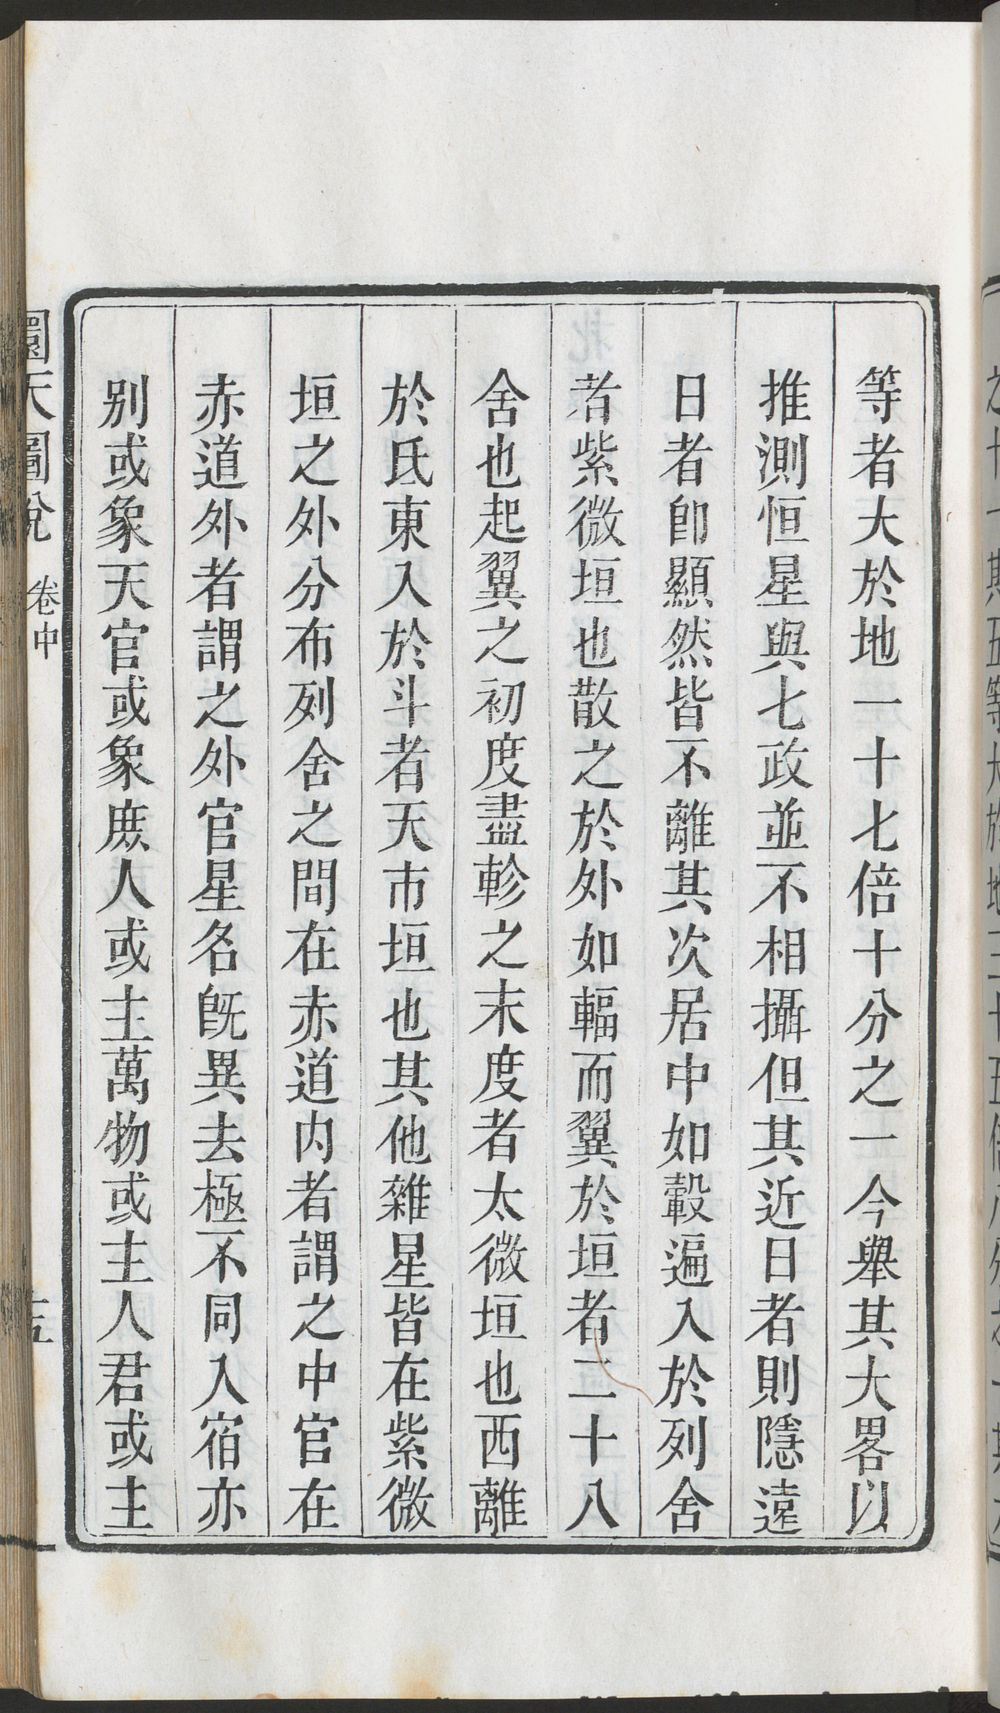 等者大於地一十七倍十分之一今舉其大畧以
推測恒星與七政並不相攝但其近日者則隱遠
日者卽顯然皆不離其次居中如轂遍入於列舍
者紫微垣也散之於外如輻而翼於垣者二十八
舍也起翼之初度盡軫之末度者太微垣也西離
於氐東入於斗者天市垣也其他雜星皆在紫微
垣之外分布列舍之間在赤道内者謂之中官在
赤道外者謂之外官星名旣異去極不同入宿亦
别或象天官或象庶人或主萬物或主人君或主
圜天圖說
卷中